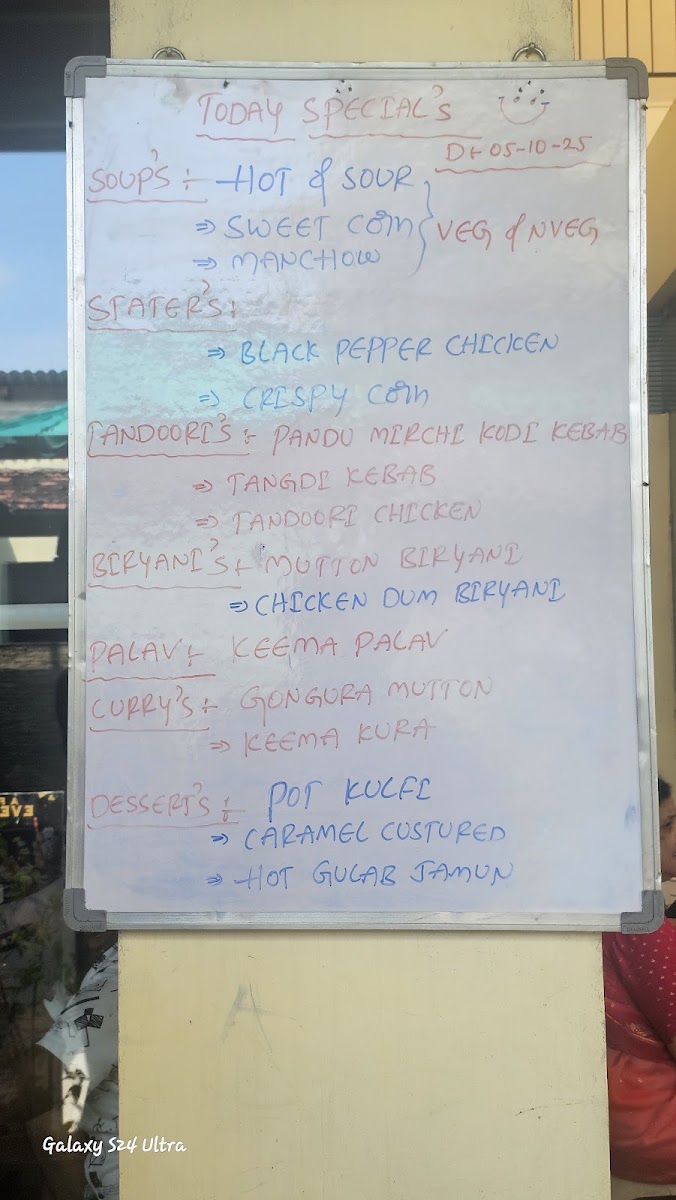 TODAY SPECIAL'S
Dt 05-10-25
SOUP'S :- HOT & SOUR
⇒ SWEET CORN } VEG & NVEG
⇒ MANCHOW
STATER'S :
⇒ BLACK PEPPER CHICKEN
⇒ CRISPY CORN
TANDOORI'S :- PANDU MIRCHI KODI KEBAB
⇒ TANGDI KEBAB
⇒ TANDOORI CHICKEN
BIRYANI'S :- MUTTON BIRYANI
⇒ CHICKEN DUM BIRYANI
PALAV :- KEEMA PALAV
CURRY'S :- GONGURA MUTTON
⇒ KEEMA KURA
DESSERT'S :- POT KULFI
⇒ CARAMEL CUSTURED
⇒ HOT GULAB JAMUN
A
Galaxy S24 Ultra